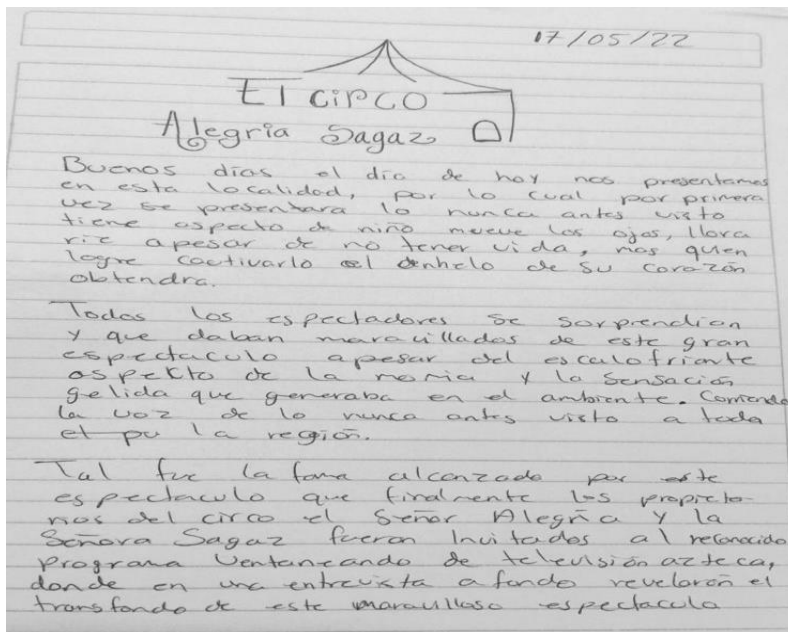 17/05/22
El circo
Alegria Sagaz
Buenos días el día de hoy nos presentamos
en esta localidad, por lo cual por primera
vez se presentara lo nunca antes visto
tiene aspecto de niño mueve los ojos, llora
rie apesar de no tener vida, mas quien
logre cautivarlo el anhelo de su corazón
obtendra.
Todos los espectadores se sorprendian
y que daban maravillados de este gran
espectaculo apesar del escalofriante
aspekto de la momia y la sensación
gelida que generaba en el ambiente. Corriendo
la voz de lo nunca antes visto a toda
la región.
Tal fue la fama alcanzada por este
espectaculo que finalmente los propieta-
rios del circo el Señor Alegría y la
Señora Sagaz fueron Invitados al reconocido
Programa Ventaneando de televisión azteca,
donde en una entrevista a fondo revelarón el
transfondo de este maravilloso espectacula